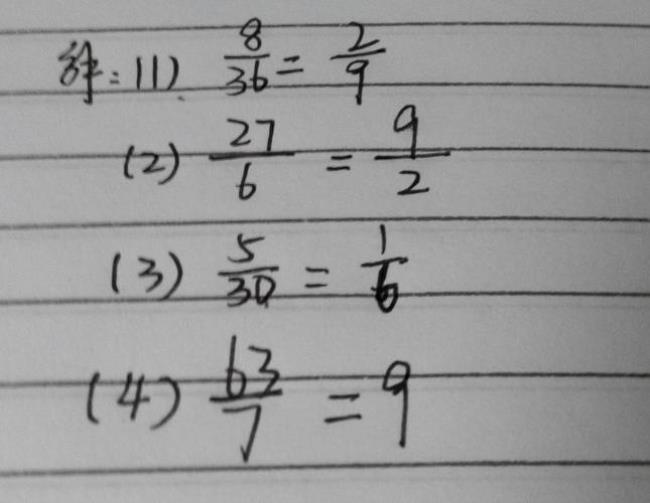 解:(1) 8/36 = 2/9
(2) 27/6 = 9/2
(3) 5/30 = 1/6
(4) 63/7 = 9